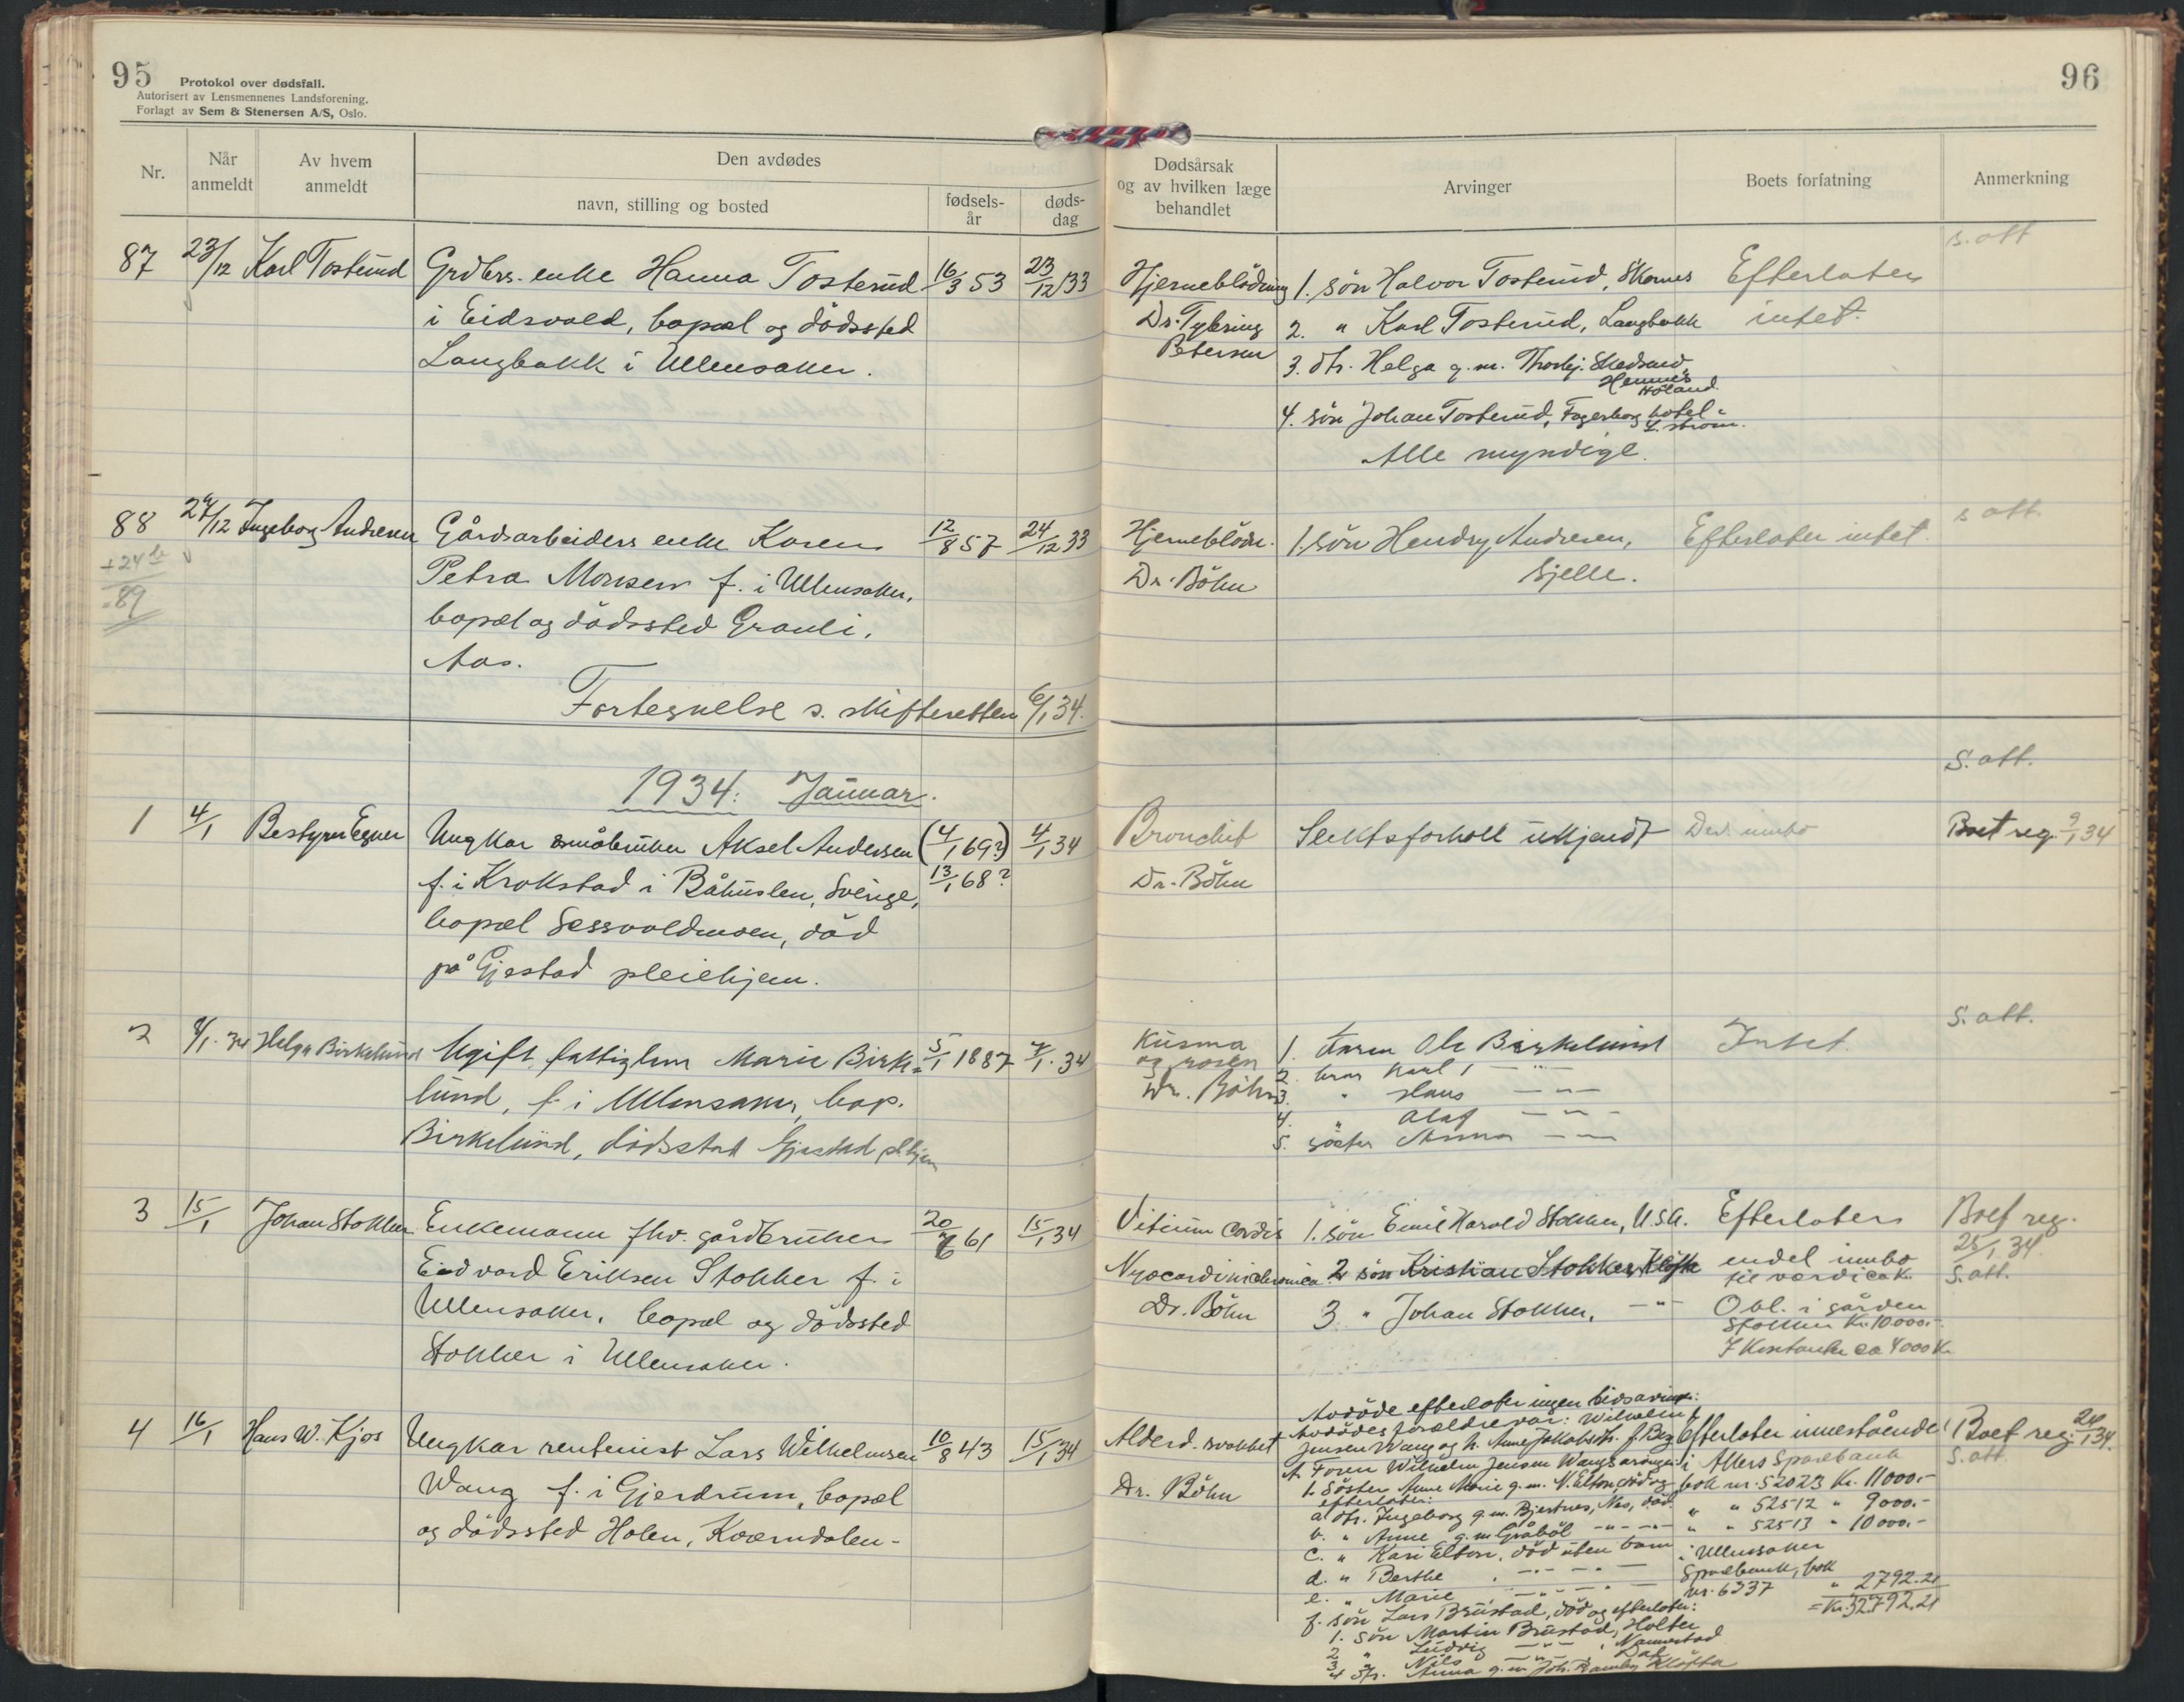 95
Protokol over dødsfall.
Autorisert av Lensmennenes Landsforening.
Forlagt av Sem & Stenersen A/S, Oslo.
Nr.
Når anmeldt
Av hvem anmeldt
Den avdødes
navn, stilling og bosted
fødsels-år
døds-dag
87 23/12 Karl Tosterud Grdbrs. enke Hanna Tosterud 16/3 53 23/12 33
i Eidsvold, bopæl og dødssted
Langbakk i Ullensaker.
88 27/12 Ingeborg Andresen Gårdsarbeiders enke Karen 12/8 57 24/12 33
+24
=89
Petra Monsen f. i Ullensaker,
bopæl og dødssted Grauli,
Aas.
Fortegnelse s. skifteretten 6/1 34.
1934: Januar.
1 4/1 Bestyrer Egner Ungkar småbruker Aksel Andersen (4/1 69?) 4/1 34
f. i Krokstad i Båhuslen, Sverige, 13/1 68?
bopæl Sessvoldmoen, död
på Gjestad pleiehjem.
2 8/1 34 Helga Birkelund Ugift fattiglem Marie Birke= 5/1 1887 7/1 34
lund, f. i Ullensaker, bop.
Birkelund, dødssted Gjestad pl.hjem
3 15/1 Johan Stokker Enkemann fhv. gårdbruker 20/6 61 15/1 34
Edvard Eriksen Stokker f. i
Ullensaker, bopæl og dødssted
Stokker i Ullensaker.
4 16/1 Hans W. Kjos Ungkar rentenist Lars Wilhelmsen 10/8 43 15/1 34
Wang f. i Gjerdrum, bopæl
og dødssted Holen, Kværndalen-
96
Dødsårsak
og av hvilken læge
behandlet
Arvinger
Boets forfatning
Anmerkning
s. att
Hjerneblödning 1. sön Halvor Tosterud, Skarnes Efterlater
Dr. Tybring 2. " Karl Tosterud, Langbakk intet.
Petersen 3. dtr. Helga g.m. Thorbj. Skedsrud,
Hemnes
Höland.
4. sön Johan Tosterud, Fagerborg hotel
L.ström.
Alle myndige.
s att.
Hjerneblödn. 1. sön Hendry Andresen, Efterlater intet.
Dr. Böhn Gjelle.
S. att.
Bronchit Slektsforhold ukjendt Del. innbo Boet reg. 9/1 34
Dr. Böhn
S. att.
Kusma 1. faren Ole Birkelund Intet
og rosen 2. bror Karl — " —
Dr. Böhn 3. " Hans — " —
4. " Olaf — " —
5. söster Anna — " —
Vitium cordis 1. sön Emil Harold Stokker, U.S.A. Efterlater Boet reg.
25/1 34.
Myocardit chronica 2 sön Kristian Stokker, Kløfta endel innbo S. att.
til verdi ca K.
Dr. Böhn 3 " Johan Stokker, — " — Obl. i gården
Stokker Kr. 10000.-
I Kontanter ca 4000 Kr
Avdöde efterlater ingen livsarving:
Avdödes foreldre var: Wilhelm
Alderd. svakhet Jensen Wang og h. Anne Jakobsdtr. f. Berg Efterlater innestående Boet reg. 24/1 34.
A. Faren Wilhelm Jensen Wangs arvinger: i Akers Sparebank S. att.
Dr. Böhn 1. Söster Anne Marie g.m. N. Elton död og bok nr. 52023 Kr. 11000.-
efterlater:
a. dtr. Ingeborg g.m. Bjertnes, Nes, död. " " 52512 " 9000.-
b. " Anne g.m. Gråböl — " — " — " " 52513 " 10000.-
c. " Kari Elton, död uten barn i Ullensaker
d. " Berthe , — " — " — Sparebank, bok
e. " Marie , — " — " — nr. 6337 " 2792.21
f. sön Lars Brustad, död og efterlater: =Kr. 32792.21
1. Sön Martin Brustad, Holter
2 " Ludvig — " — , Nannestad
3 " Nils — " — , Dal
4 dtr. Anna g.m. Joh. Kløfta